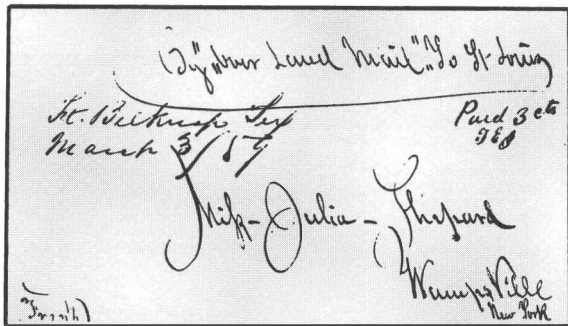 By "Over Land Mail" To St Louis
Ft. Belknap Tex
March 3 / 57
Paid 3 cts
Miss Julia Shepard
Wampsville
New York